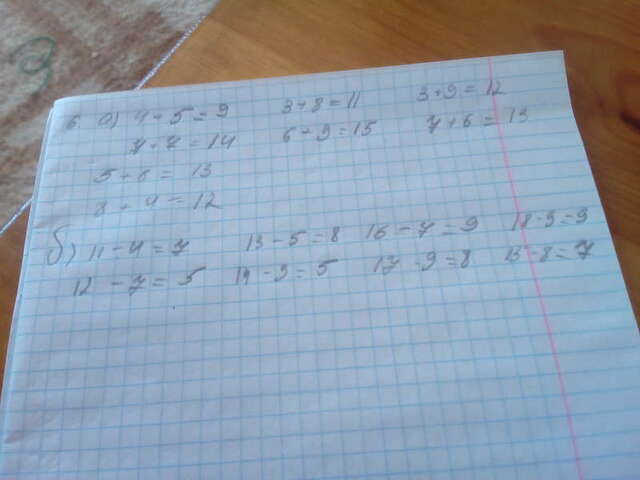 6 а) 4+5=9 3+8=11 3+9=12
7+7=14 6+9=15 7+6=13
5+8=13
8+4=12
б) 11-4=7 13-5=8 16-7=9 18-9=9
12-7=5 14-9=5 17-9=8 15-8=7